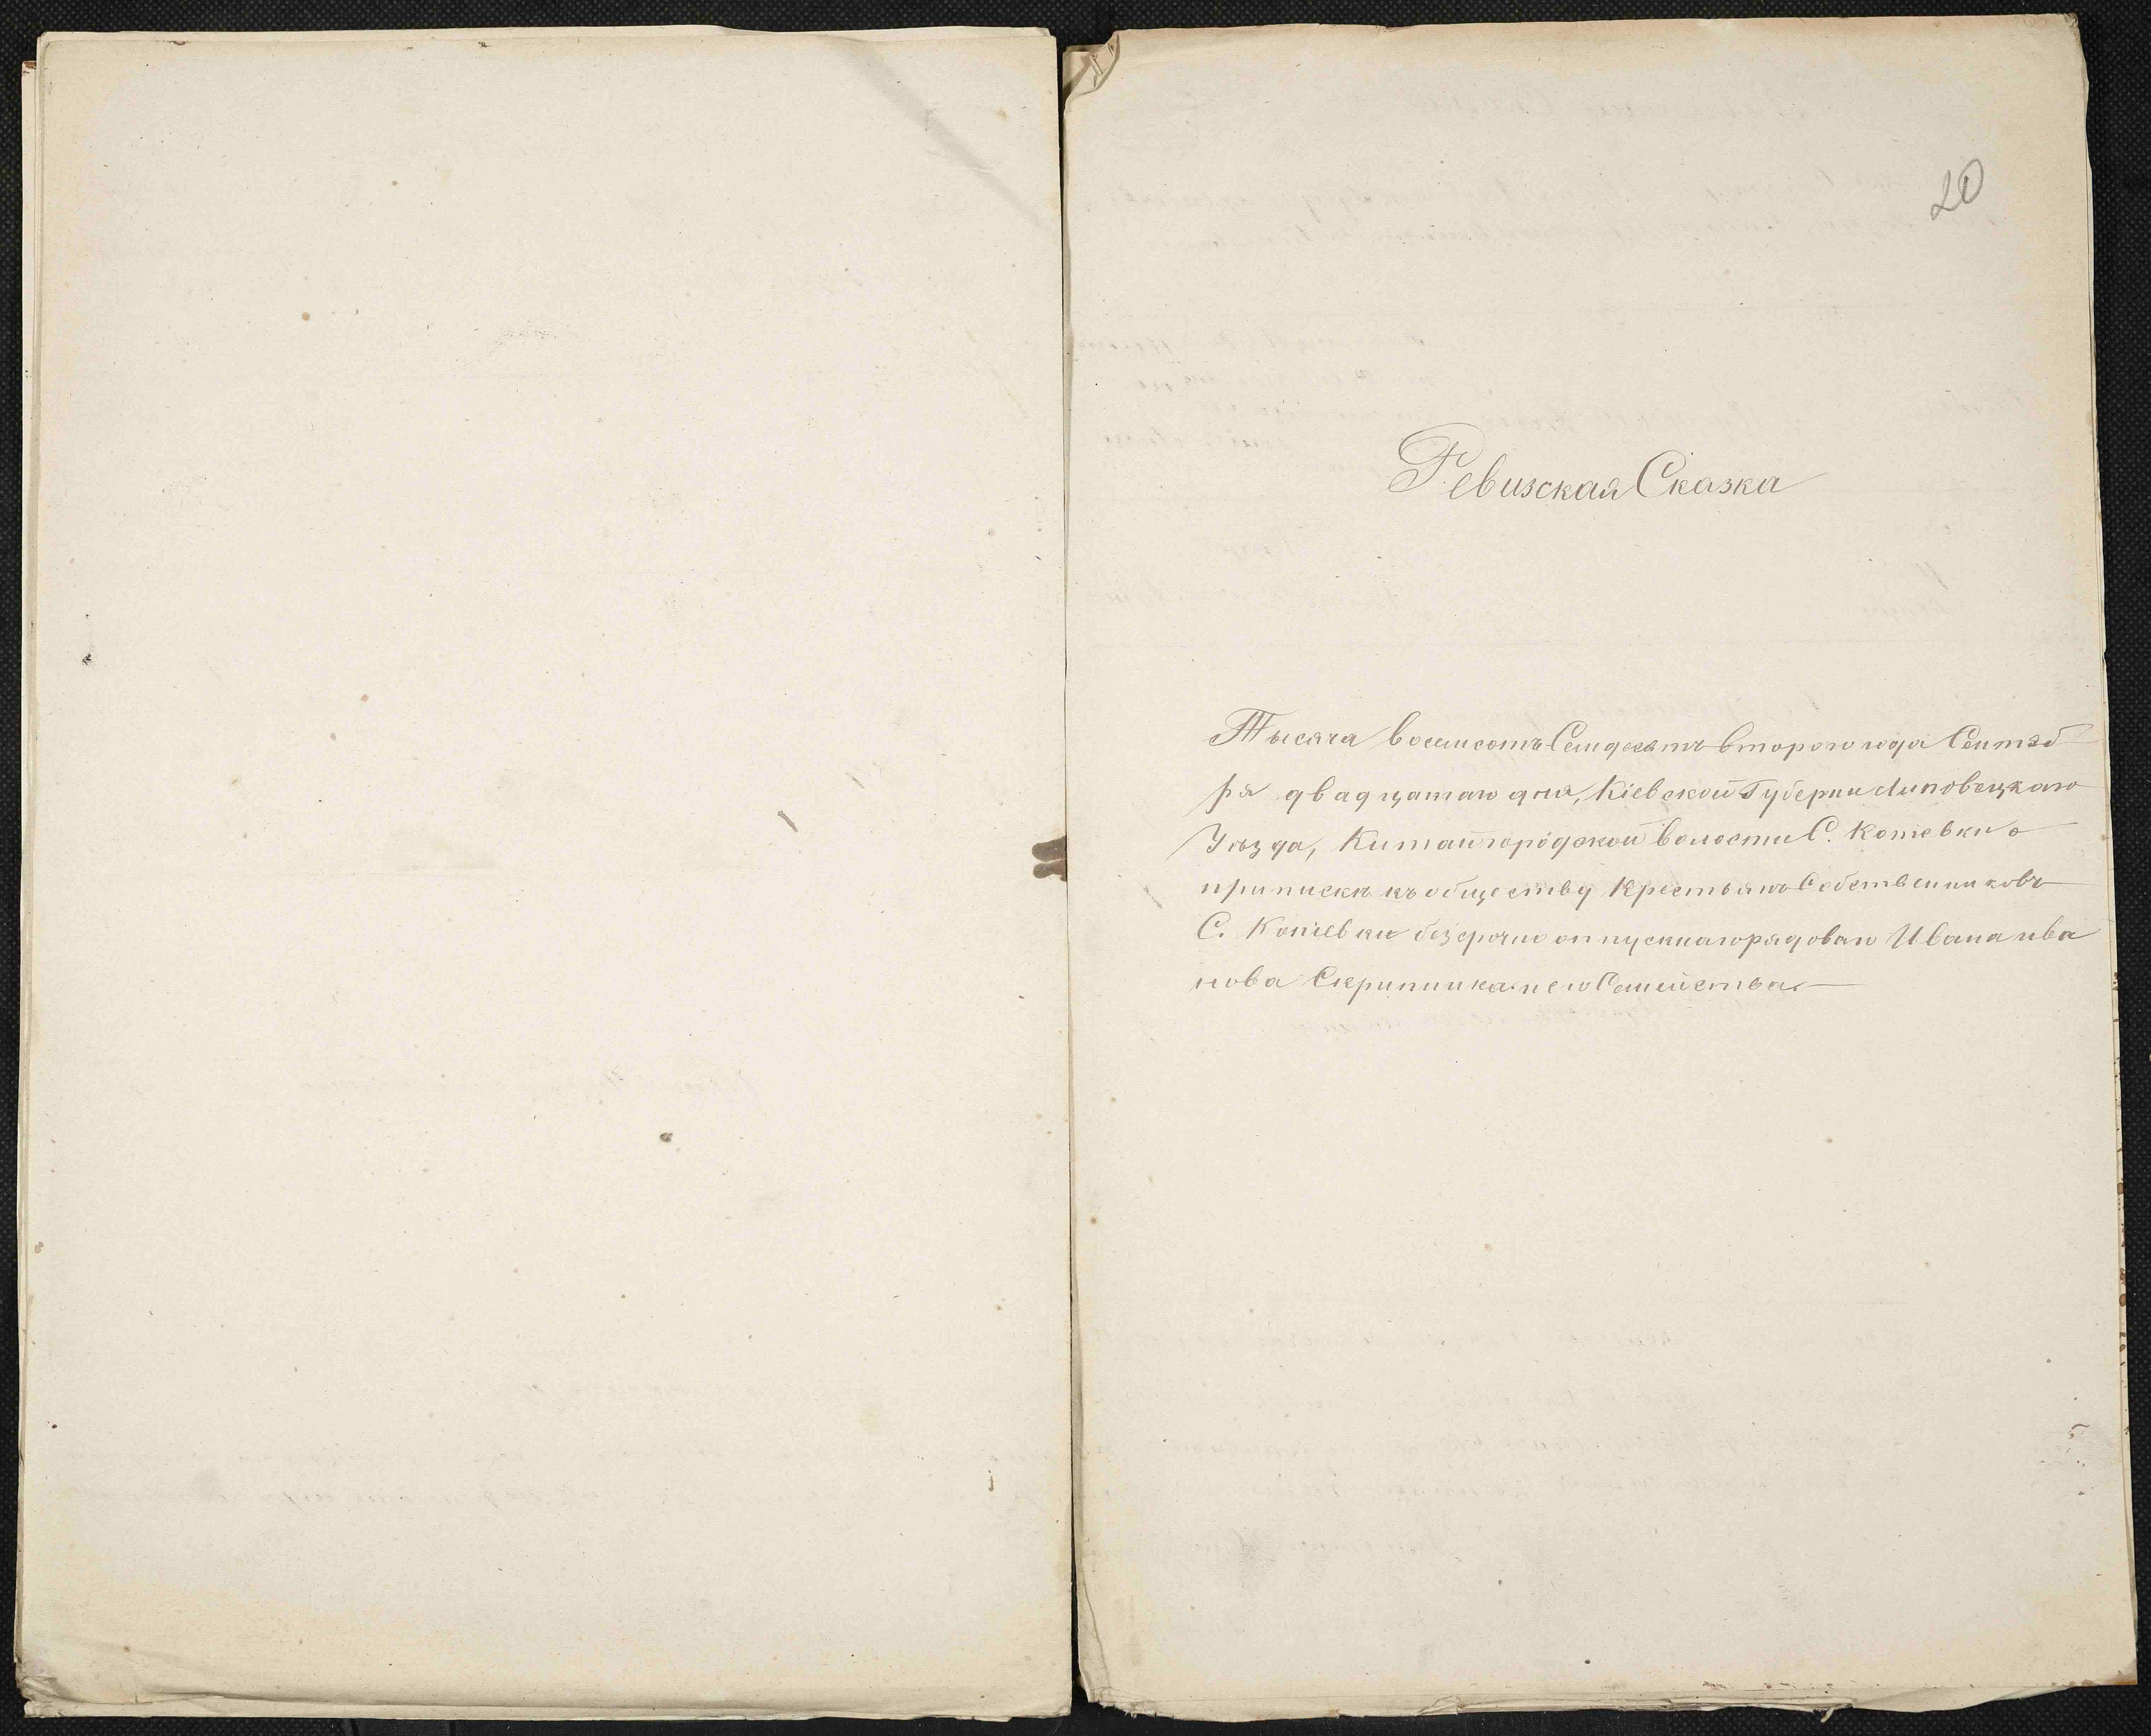 20
Ревизская Сказка
Тысяча восемсотъ Семдесятъ второго года Сентяб
ря двадцатаго дня, Кіевской Губерніи Липовецкаго
Уѣзда, Китайгородской волости С. Копіевки о
приписки къ обществу Крестьянъ Собственниковъ
С. Копіевки безсрочно отпускнаго рядоваго Ивана ива
нова Скрипника и его Семейства.